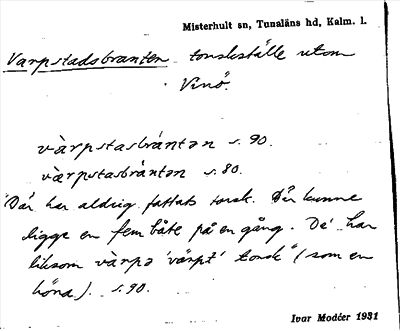 Misterhult sn, Tunaläns hd, Kalm. l.
Varpstadsbranten torskställe utom
Vinö.
värpstasbrántən s. 90.
värpstasbrántən s. 80.
"Där har aldrig fattats torsk. Där kunne
ligge en fem båte på en gång. De' har
liksom värpə 'värpt' torsk" (som en
höna). s. 90.
Ivar Modéer 1931